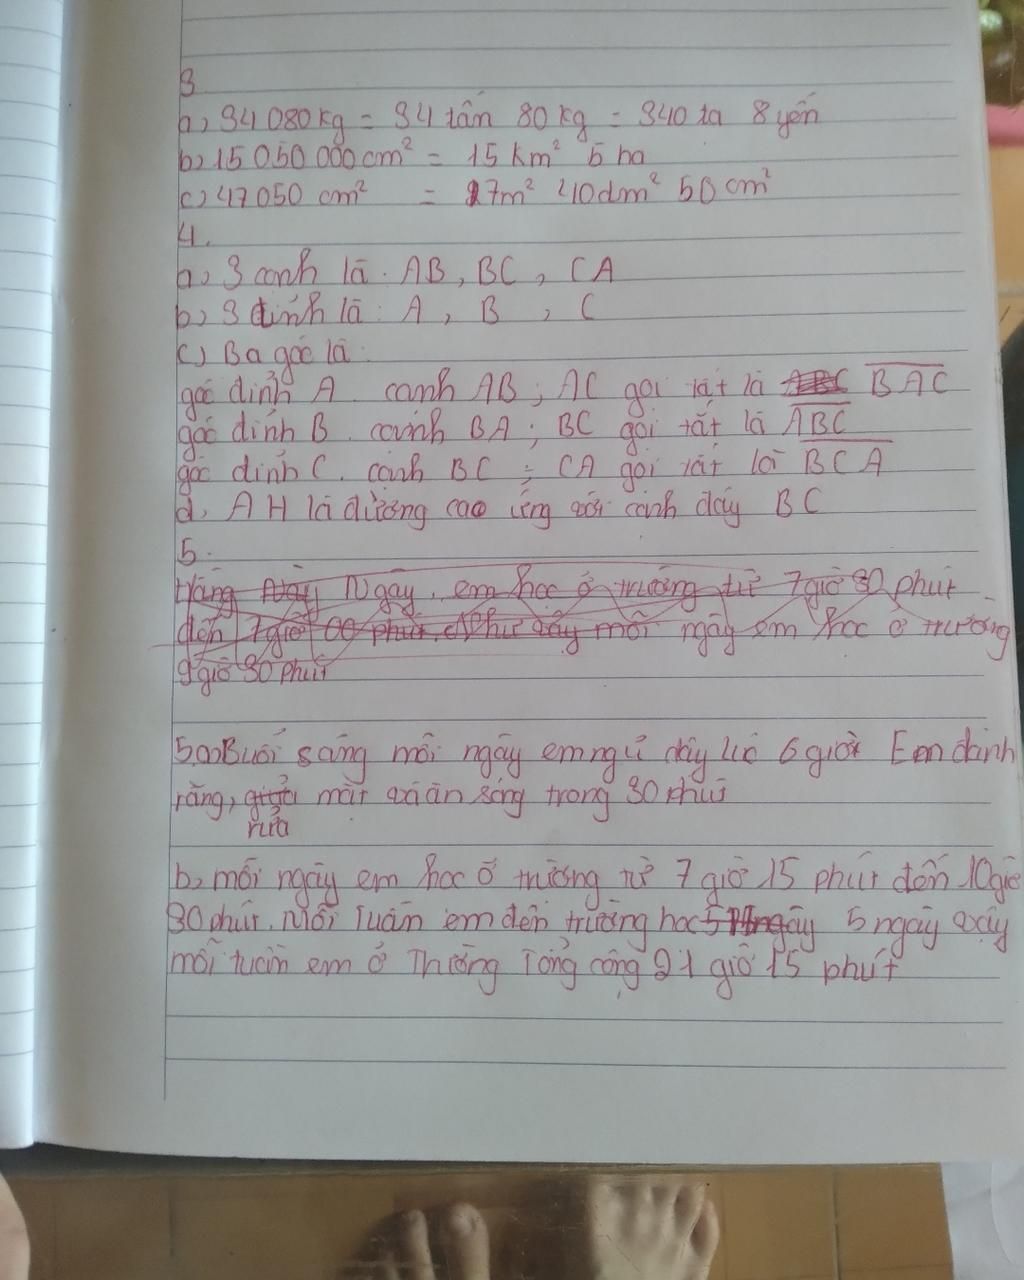 3
a, 34 080 kg = 34 tấn 80 kg = 340 tạ 8 yến
b, 15 050 000 cm² = 15 km² 5 ha
c, 47 050 cm² = 27m² 40dm² 50 cm²
4.
a, 3 cạnh là: AB, BC, CA
b, 3 đỉnh là: A, B, C
c, Ba góc là:
góc đỉnh A. cạnh AB; AC gọi tắt là ABC BAC
góc đỉnh B. cạnh BA; BC gọi tắt là ABC
góc đỉnh C. cạnh BC; CA gọi tắt là BCA
d, AH là đường cao ứng với cạnh đáy BC
5.
Hằng Ngày, em học ở trường từ 7 giờ 30 phút
đến 7 giờ 00 phút. Như vậy mỗi ngày em học ở trường
9 giờ 30 phút
5,a) Buổi sáng mỗi ngày em ngủ dậy lúc 6 giờ. Em đánh
răng, mặt và ăn sáng trong 30 phút
rửa
b, mỗi ngày em học ở trường từ 7 giờ 15 phút đến 10 giờ
30 phút. Mỗi Tuần em đến trường học 5 ngày 5 ngày vậy
mỗi tuần em ở Trường Tổng cộng 21 giờ 15 phút